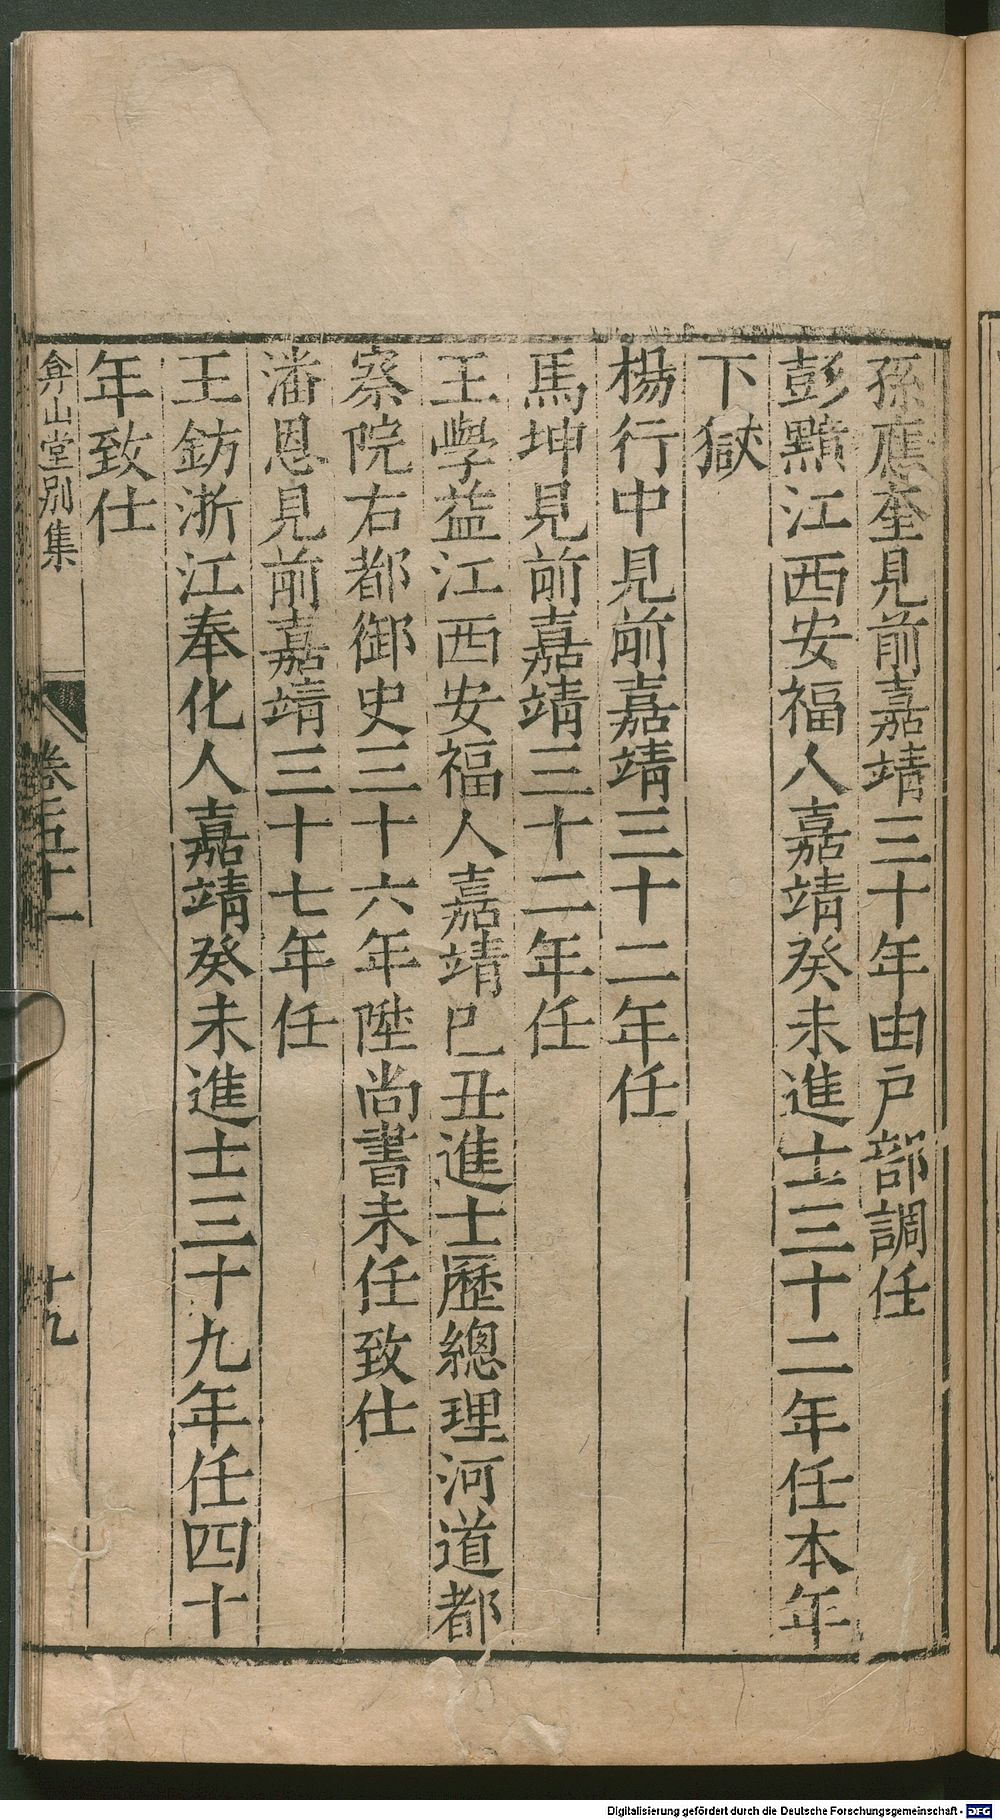 孫應奎見前嘉靖三十年由戶部調任
彭黯江西安福人嘉靖癸未進士三十二年任本年
下獄
楊行中見前嘉靖三十二年任
馬坤見前嘉靖三十二年任
王學益江西安福人嘉靖巳丑進士歷總理河道都
察院右都御史三十六年陞尚書未任致仕
潘恩見前嘉靖三十七年任
王鈁浙江奉化人嘉靖癸未進士三十九年任四十
年致仕
弇山堂別集
卷五十一
十九
Digitalisierung gefördert durch die Deutsche Forschungsgemeinschaft - DFG